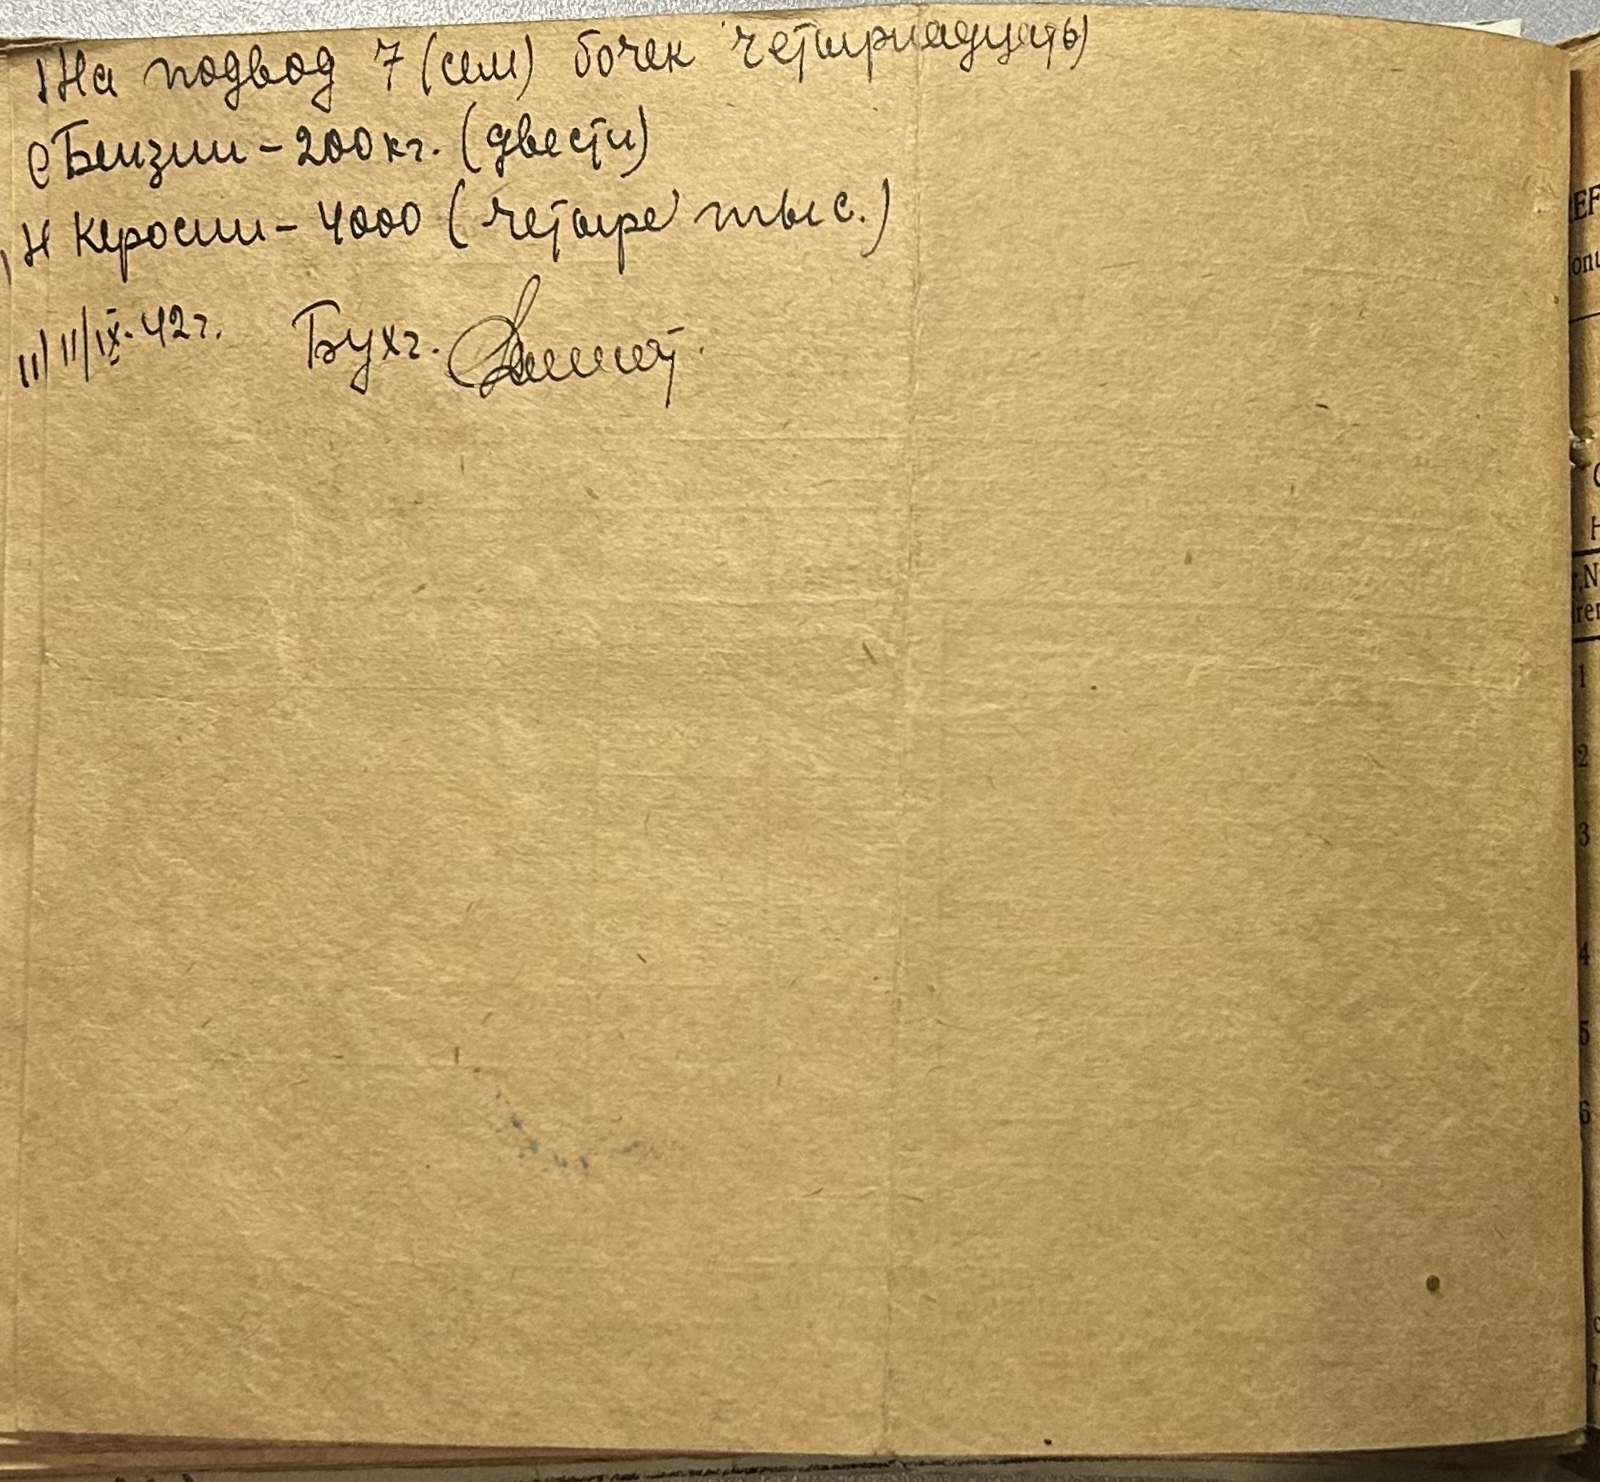 На подвод 7 (сем) бочек четырнадцать)
Бензин - 200 кг. (двести)
Керосин - 4000 (четыре тыс.)
11/IX-42г. Бухг.
1
2
3
4
5
6